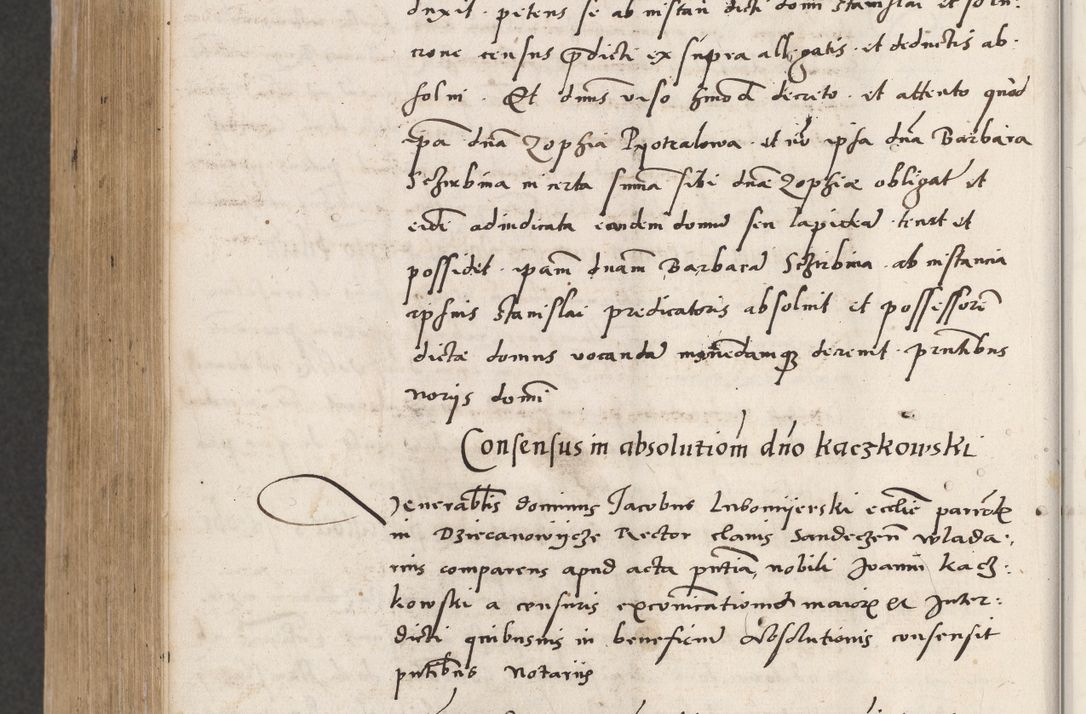 duxit. petens se ab instan dicti domi Stanislai et solu:
cione census p̄dicti ex supra allegatis. et deductis ab:
solui. Et dnus viso hmōi decreto. et attento quod
ipa dna Zophia Pyotralowa. et nō ipsa dna Barbara
Schirbina in certa suma sibi dnae Zophiae obligat et
eidē adiudicata eandem domū seu lapideā tenet et
possidet. ipam dnam Barbarā Schirbina. ab instancia
ipsius Stanislai predicatoris absoluit et possessorē
dictae domus vocandā decreuit. pntibus
norijs domi
Consensus in absolutiom dno Kaczkowski
Venerablis dominus Jacobus Lubomijerski eccliē parrōlx
in Dziecanowijcze Rector clauis Sandeczeñ wlada:
rius comparens apud acta pntia, nobili Joanni Kacz:
kowski a censuris excōicationū maiorx et Inter:
dicti quibusuis in beneficiū absolutionis consensit
pntibus Notariis